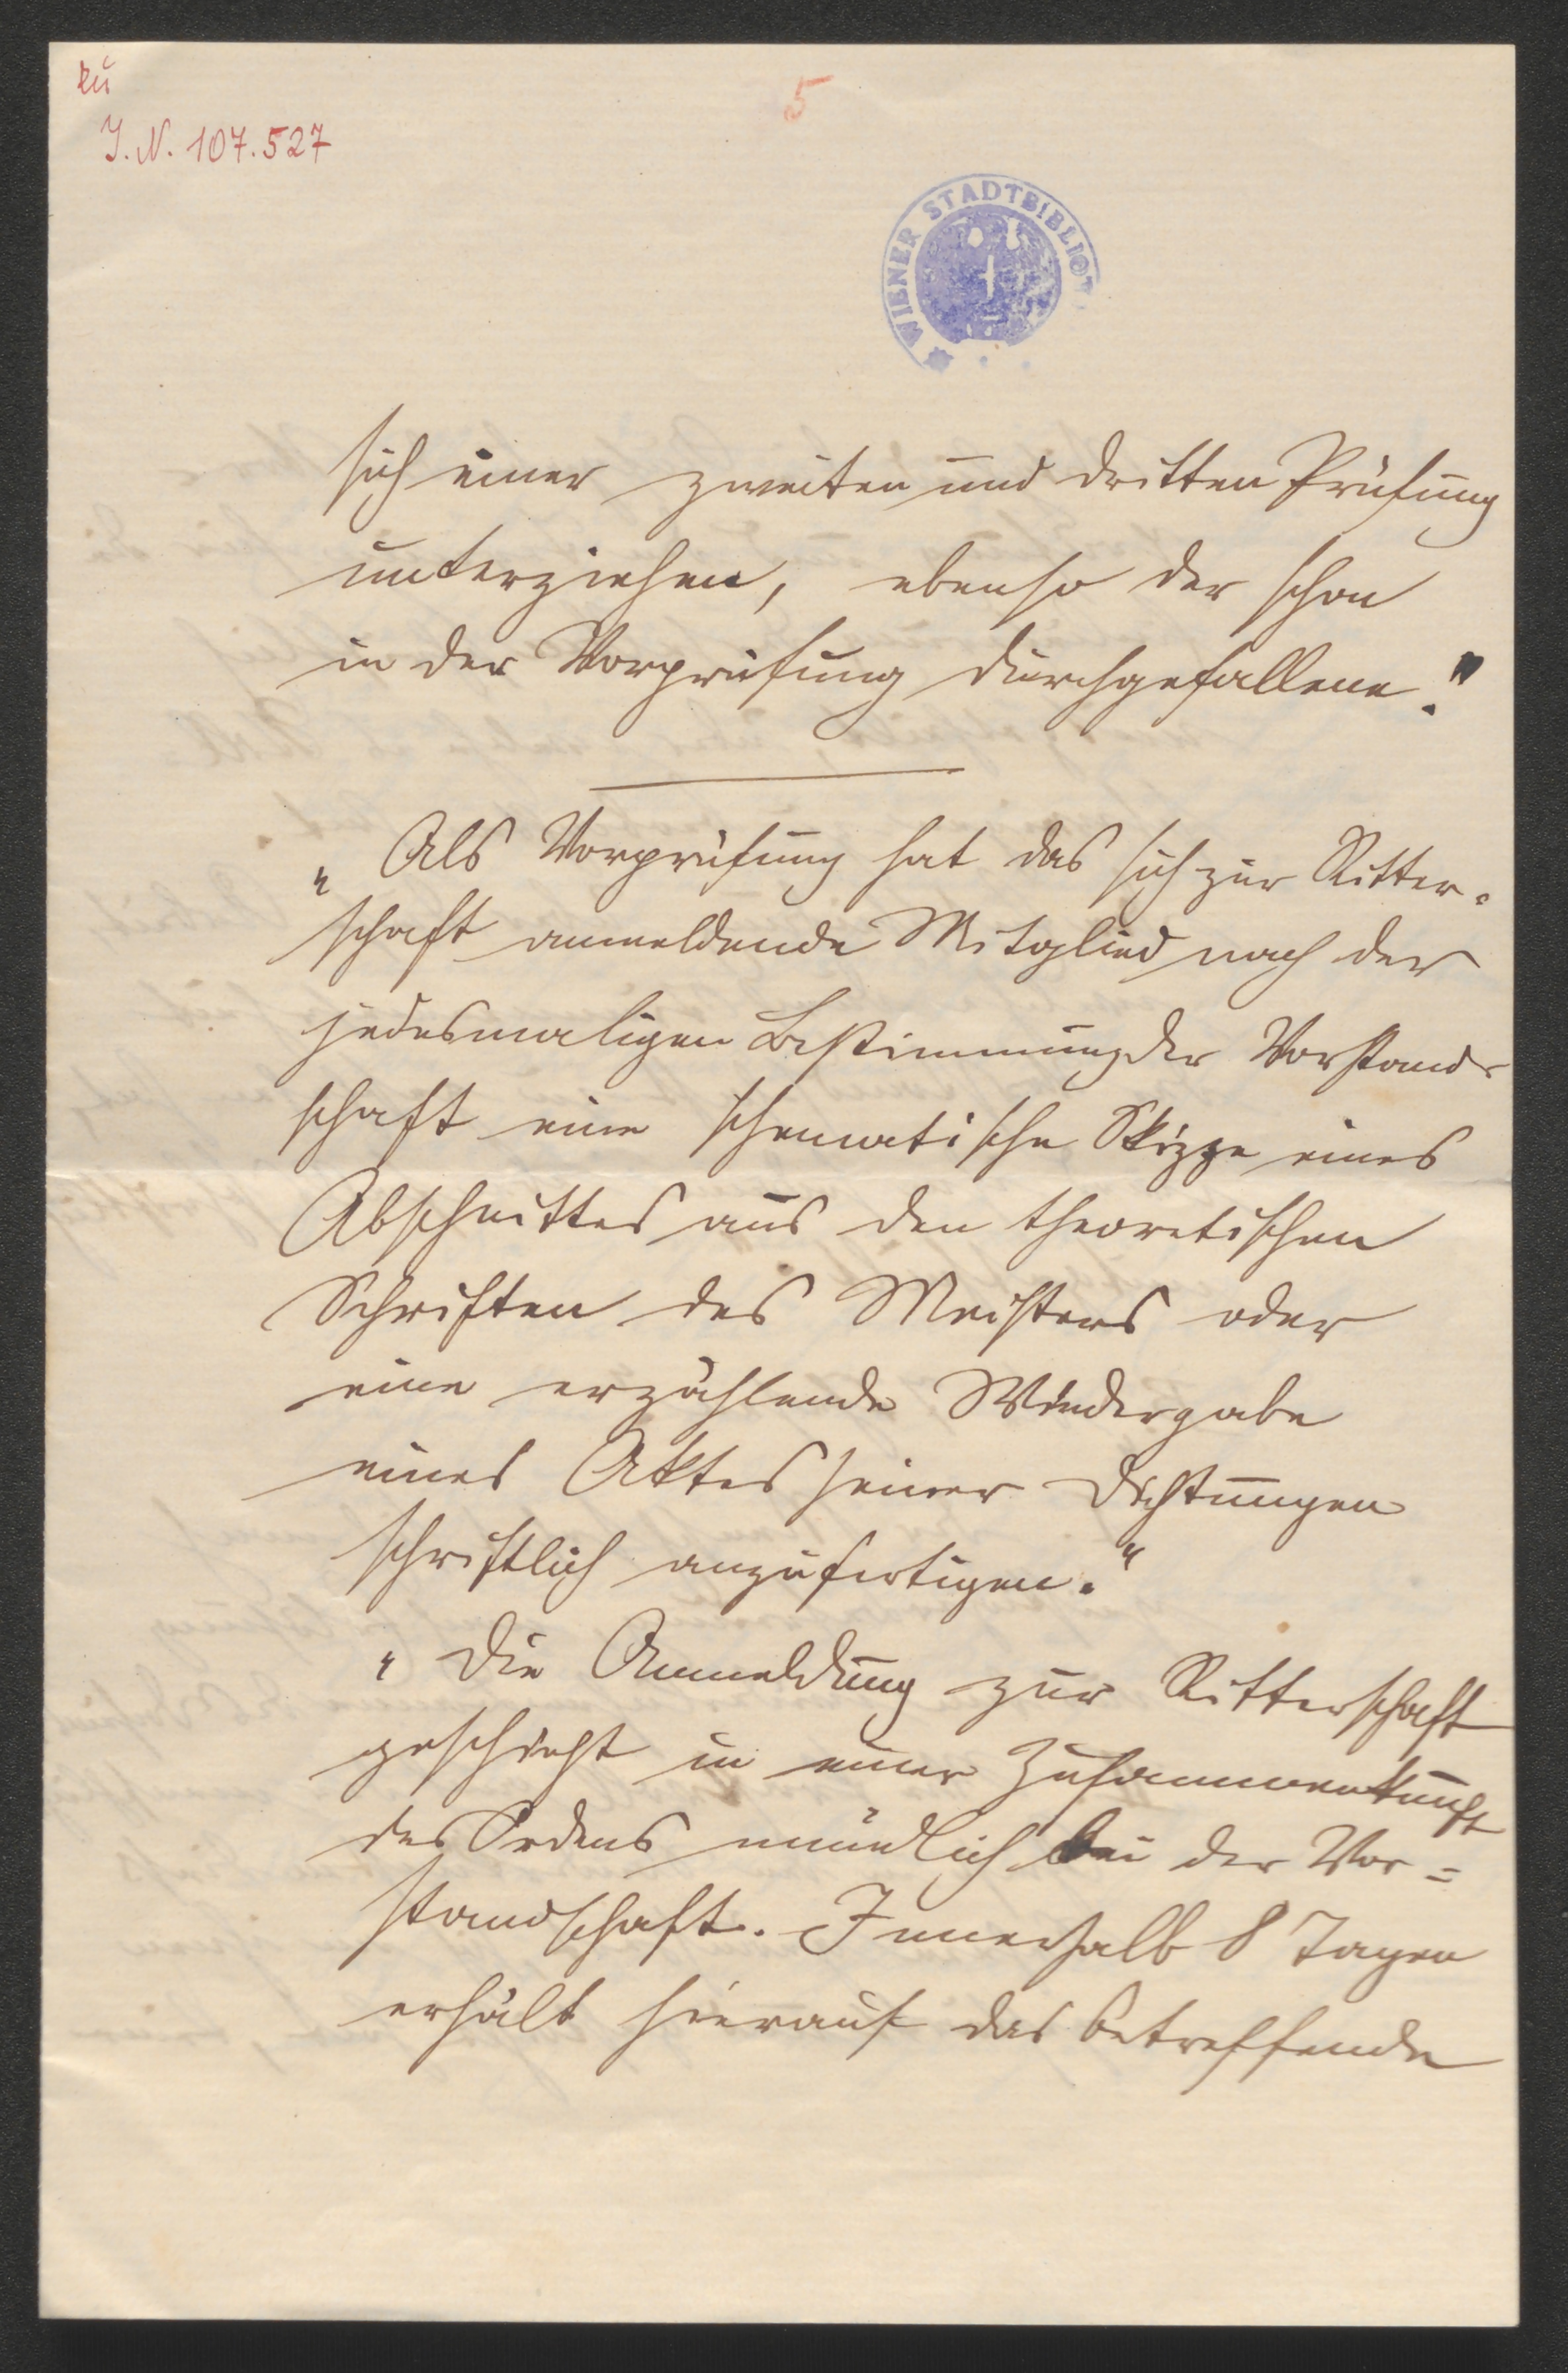 zu
I. N. 107.527
5
WIENER STADTBIBLIOT
sich einer zweiten und dritten Prüfung
unterziehen, ebenso der schon
in der Vorprüfung durchgefallene."
„Als Vorprüfung hat das sich zur Ritter-
schaft anmeldende Mitglied nach der
jedesmaligen Bestimmung der Vorstand-
schaft eine schematische Skizze eines
Abschnittes aus den theoretischen
Schriften des Meisters oder
eine erzählende Wiedergabe
eines Aktes seiner Dichtungen
schriftlich anzufertigen."
„Die Anmeldung zur Ritterschaft
geschieht in einer Zusammenkunft
des Ordens mündlich bei der Vor=
standschaft. Innerhalb 8 Tagen
erhält hierauf das betreffende